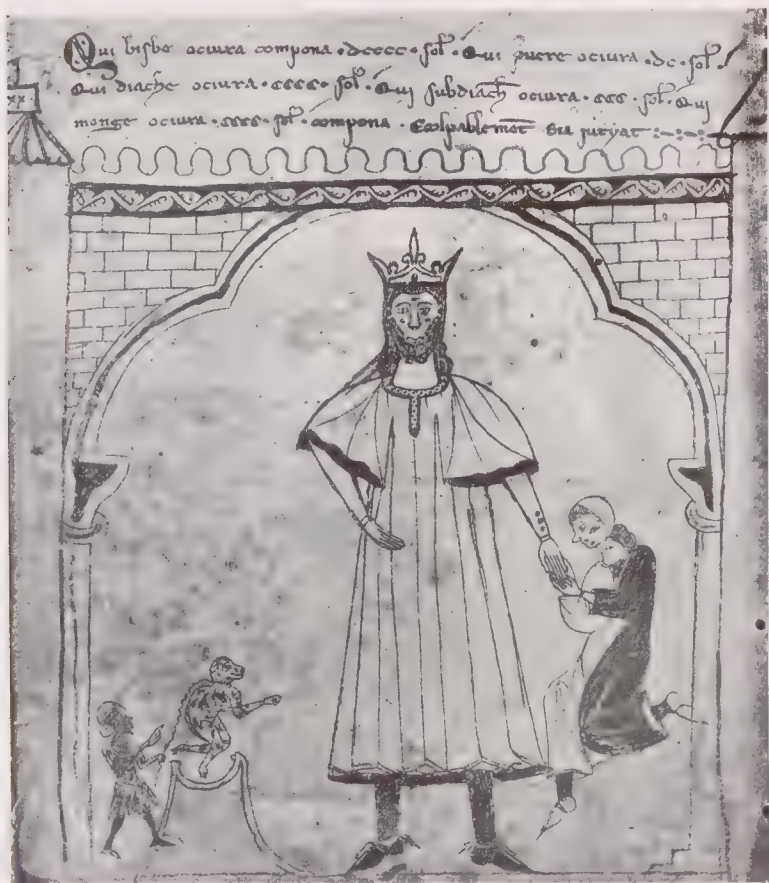 Qui bisbe ociura compona · dcccc · sol̃ · Qui prere ociura · dc · sol̃ ·
Qui diache ociura · cccc · sol̃ · Qui subdiach̃ ociura · ccc · sol̃ · Qui
monge ociura · cccc · sol̃ · compona · Ecolpablemẽt sia jutyat :~:~:~